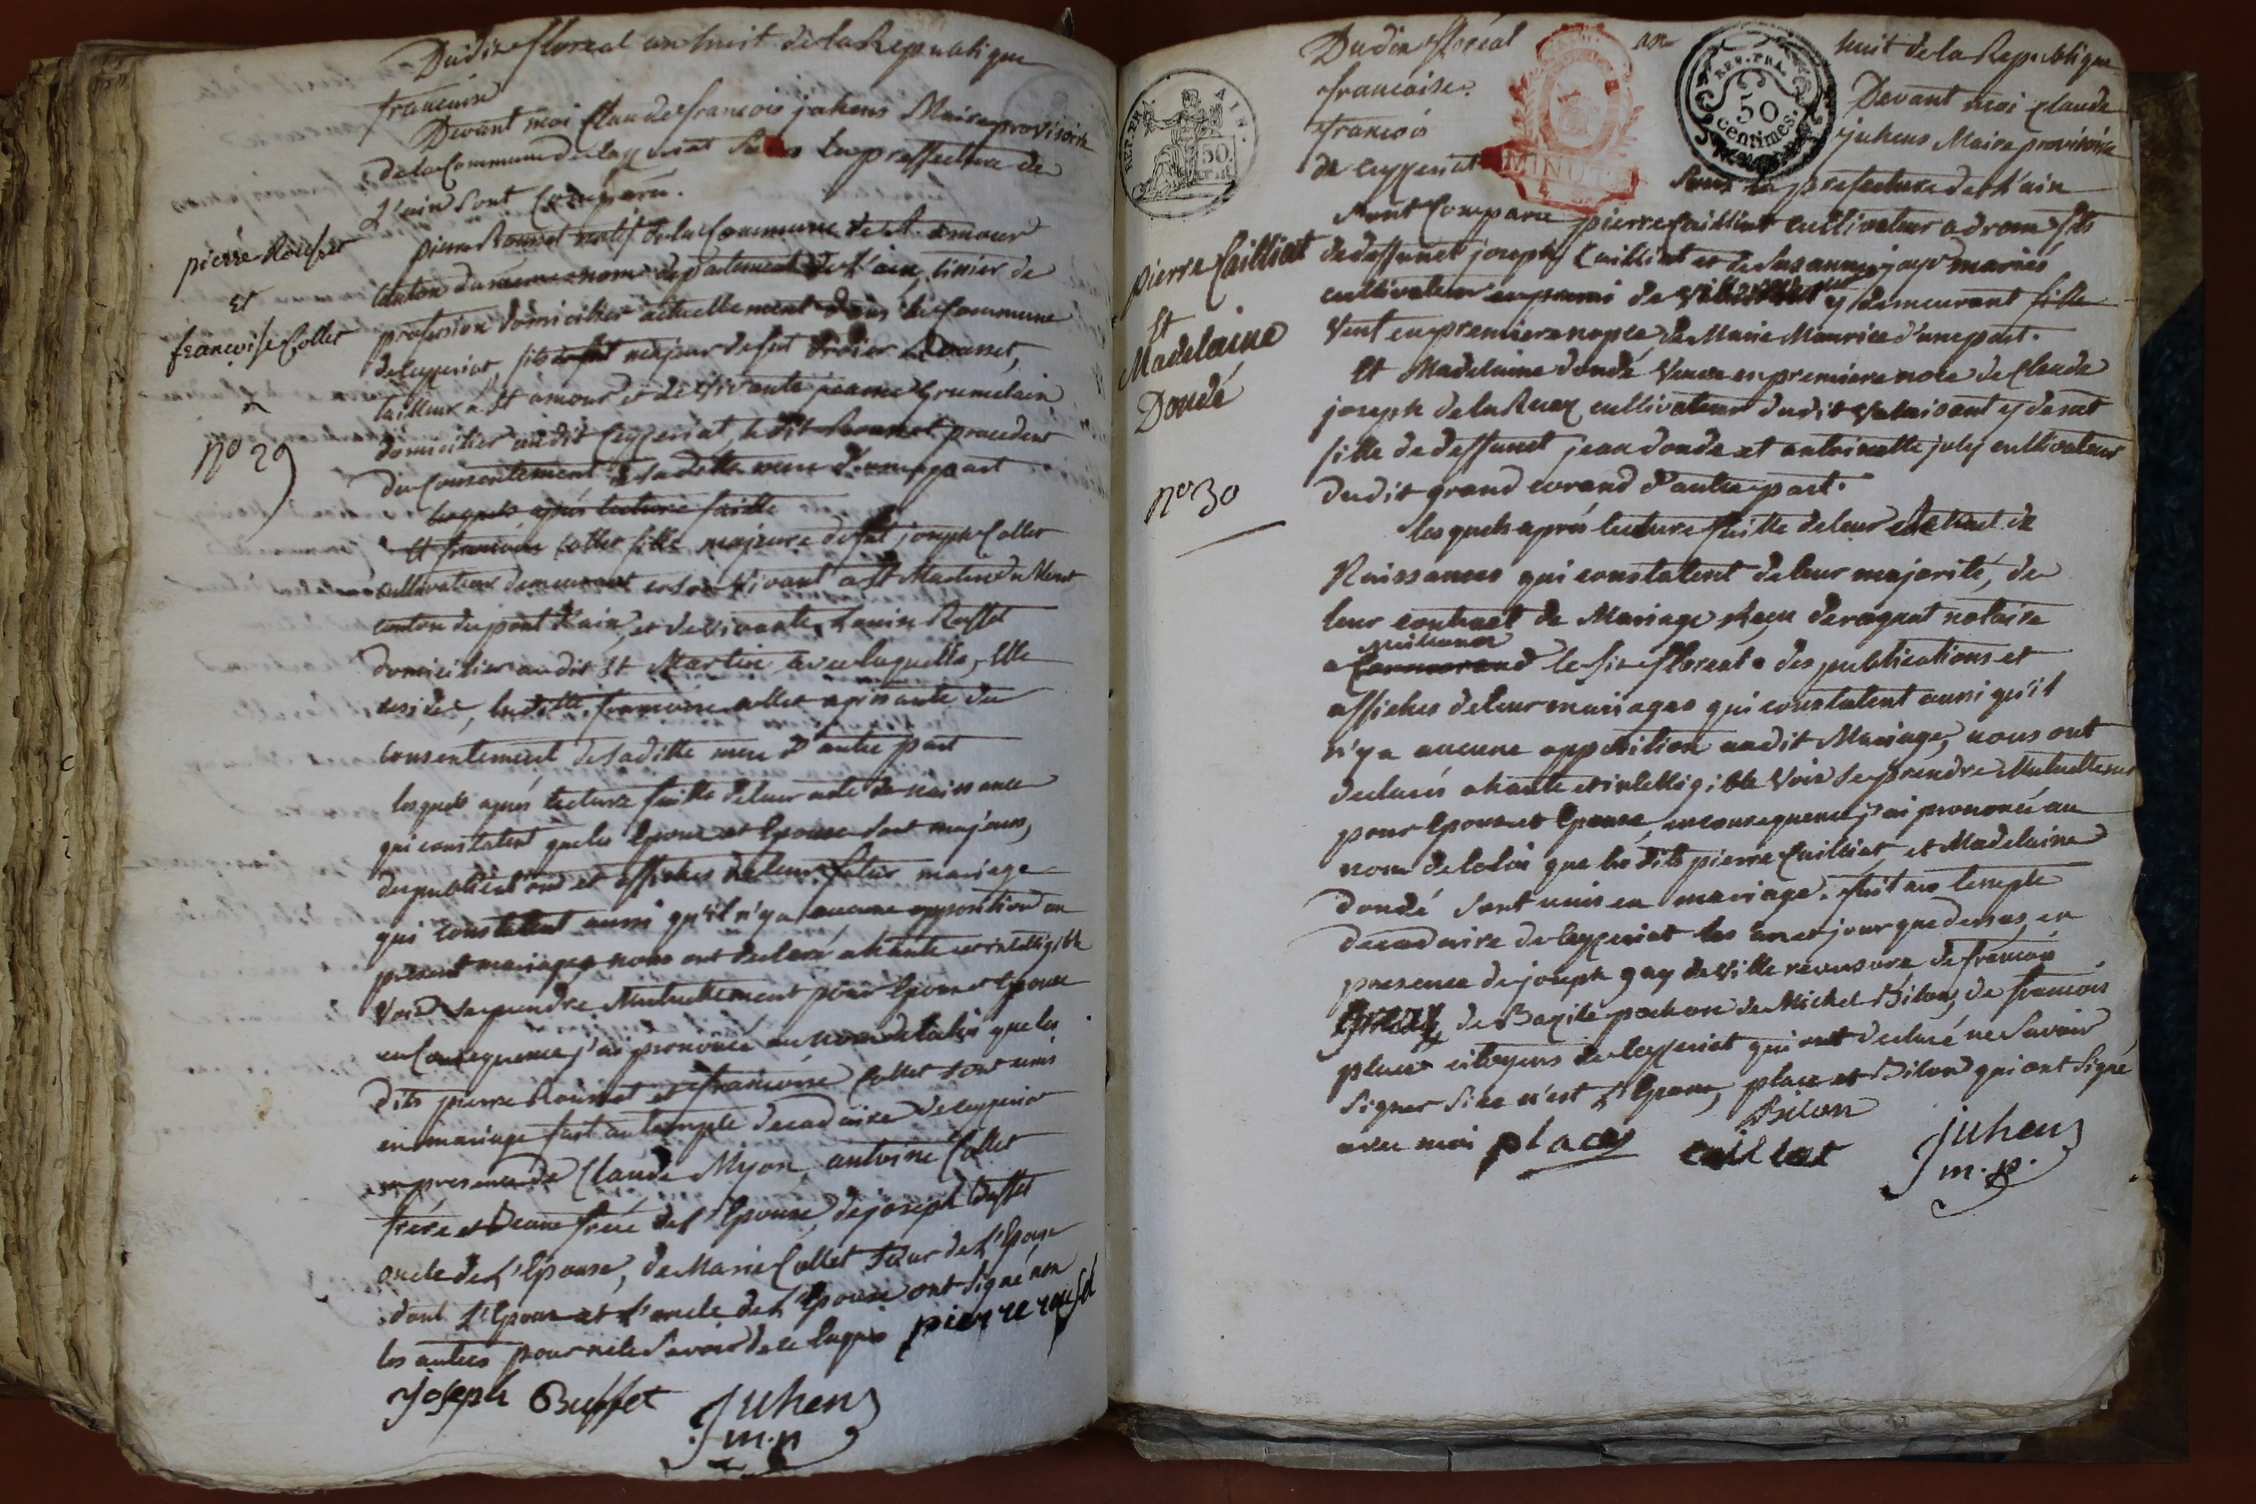 Du dix floreal an huit de la Republique
francaise
Devant moi Claude francois juhens Maire provisoire
de la Commune de Ceyzeriat la prefecture de
L'ain sont Comparu.
pierre Rousset natif de la Commune de St amour
Canton du meme nom departement de l'ain, de
profession domicilier actuellement dans la Commune
de Ceyzeriat, fils majeur de feu Rousset,
tailleur a St amour et de vivante jeanne Grumelain
domicilier audit Ceyzeriat, ledit Rousset procedent
du Consentement de sa ditte mere d'une part
lesquels après lecture faitte
Et francoise Collet fille majeure de feu joseph Collet
cultivateur demeurant en son vivant a St Martin du Mont
canton du pont d'ain et de vivante Buffet
domicilier audit St Martin avec laquelle, Elle
reside, laditte francoise Collet agissante du
consentement de sa ditte mere d'autre part
lesquels après lecture faitte de leur acte de naissance
qui constatent que les Epoux et Epouse sont majeurs,
des publications et affiches de leur futur mariage
qui constatent aussi qu'il n'y a aucune opposition au
present mariage nous ont declaré a haute et intelligible
Voix se prendre Mutuellement pour Epoux et Epouse
en Consequence j'ai prononcé au nom de la loi que les
dits pierre Rousset et francoise Collet sont unis
en mariage fait au temple decadaire de ceyzeriat
en presence de Claude Myon, antoine Collet
frere et Beau frere de l'Epouse, de joseph Buffet
oncle de L'Epouse, de Marie Collet sœur de L'Epouse
dont L'Epoux et l'oncle de L'Epouse ont signé non
les autres pour ne le savoir de ce enquis pierre rousé
joseph Buffet Juhens
m.p
pierre Rousset
Et
francoise Collet
n° 29
Du dix floréal an huit de la Republique
francaise. Devant moi Claude
francois juhens Maire provisoire
de ceyzeriat sous la prefecture de L'ain
REP. FRA.
50
centimes.
MINUTE
50
sont Comparu pierre Cailliat cultivateur a drom fils
de deffunct joseph Cailliat et de Susanne jayr mariés
cultivateur de y demeurant
Veuf en premiere nopce de Marie Maurice d'une part.
Et Madelaine dondé Veuve en premiere noce de Claude
joseph delaRuaz cultivateur dudit y decedé
fille de deffunct jean dondé et antoinette july cultivateur
dudit grand corand d'autre part.
lesquels après lecture faitte de leur extrait de
Naissances qui constatent de leur majorité, de
leur contract de Mariage Reçu deroguat notaire
a le six floreal des publications et
affiches de leur mariages qui constatent aussi qu'il
n'y a aucune opposition audit Mariage, nous ont
declarés a haute et intelligible Voix se prendre Mutuellement
pour Epoux et Epouse, en consequence j'ai prononcé au
nom de la loi que les dits pierre Cailliat et Madelaine
dondé sont unis en mariage. fait au temple
decadaire de ceyzeriat les an et jour que dessus en
presence de joseph gay de Ville reversure de francois
de Bazile pochon de Michel Bilon, de francois
place citoyens de Ceyzeriat qui ont declaré ne savoir
signer si ce n'est L'Epoux, place et Bilon qui ont signé
avec moi place Bilon
cailliat Juhens
m.p.
pierre Cailliat
Et
Madelaine
Dondé
n° 30